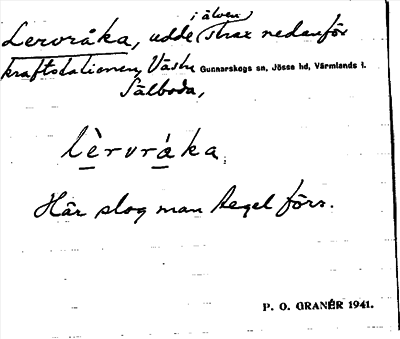 i älven
Lervråka, udde strax nedanför
kraftstationen, Västu Gunnarskogs sn, Jösse hd, Värmlands l.
Sälboda,
lèrvráka.
Här slog man tegel förr.
P. O. GRANÉR 1941.